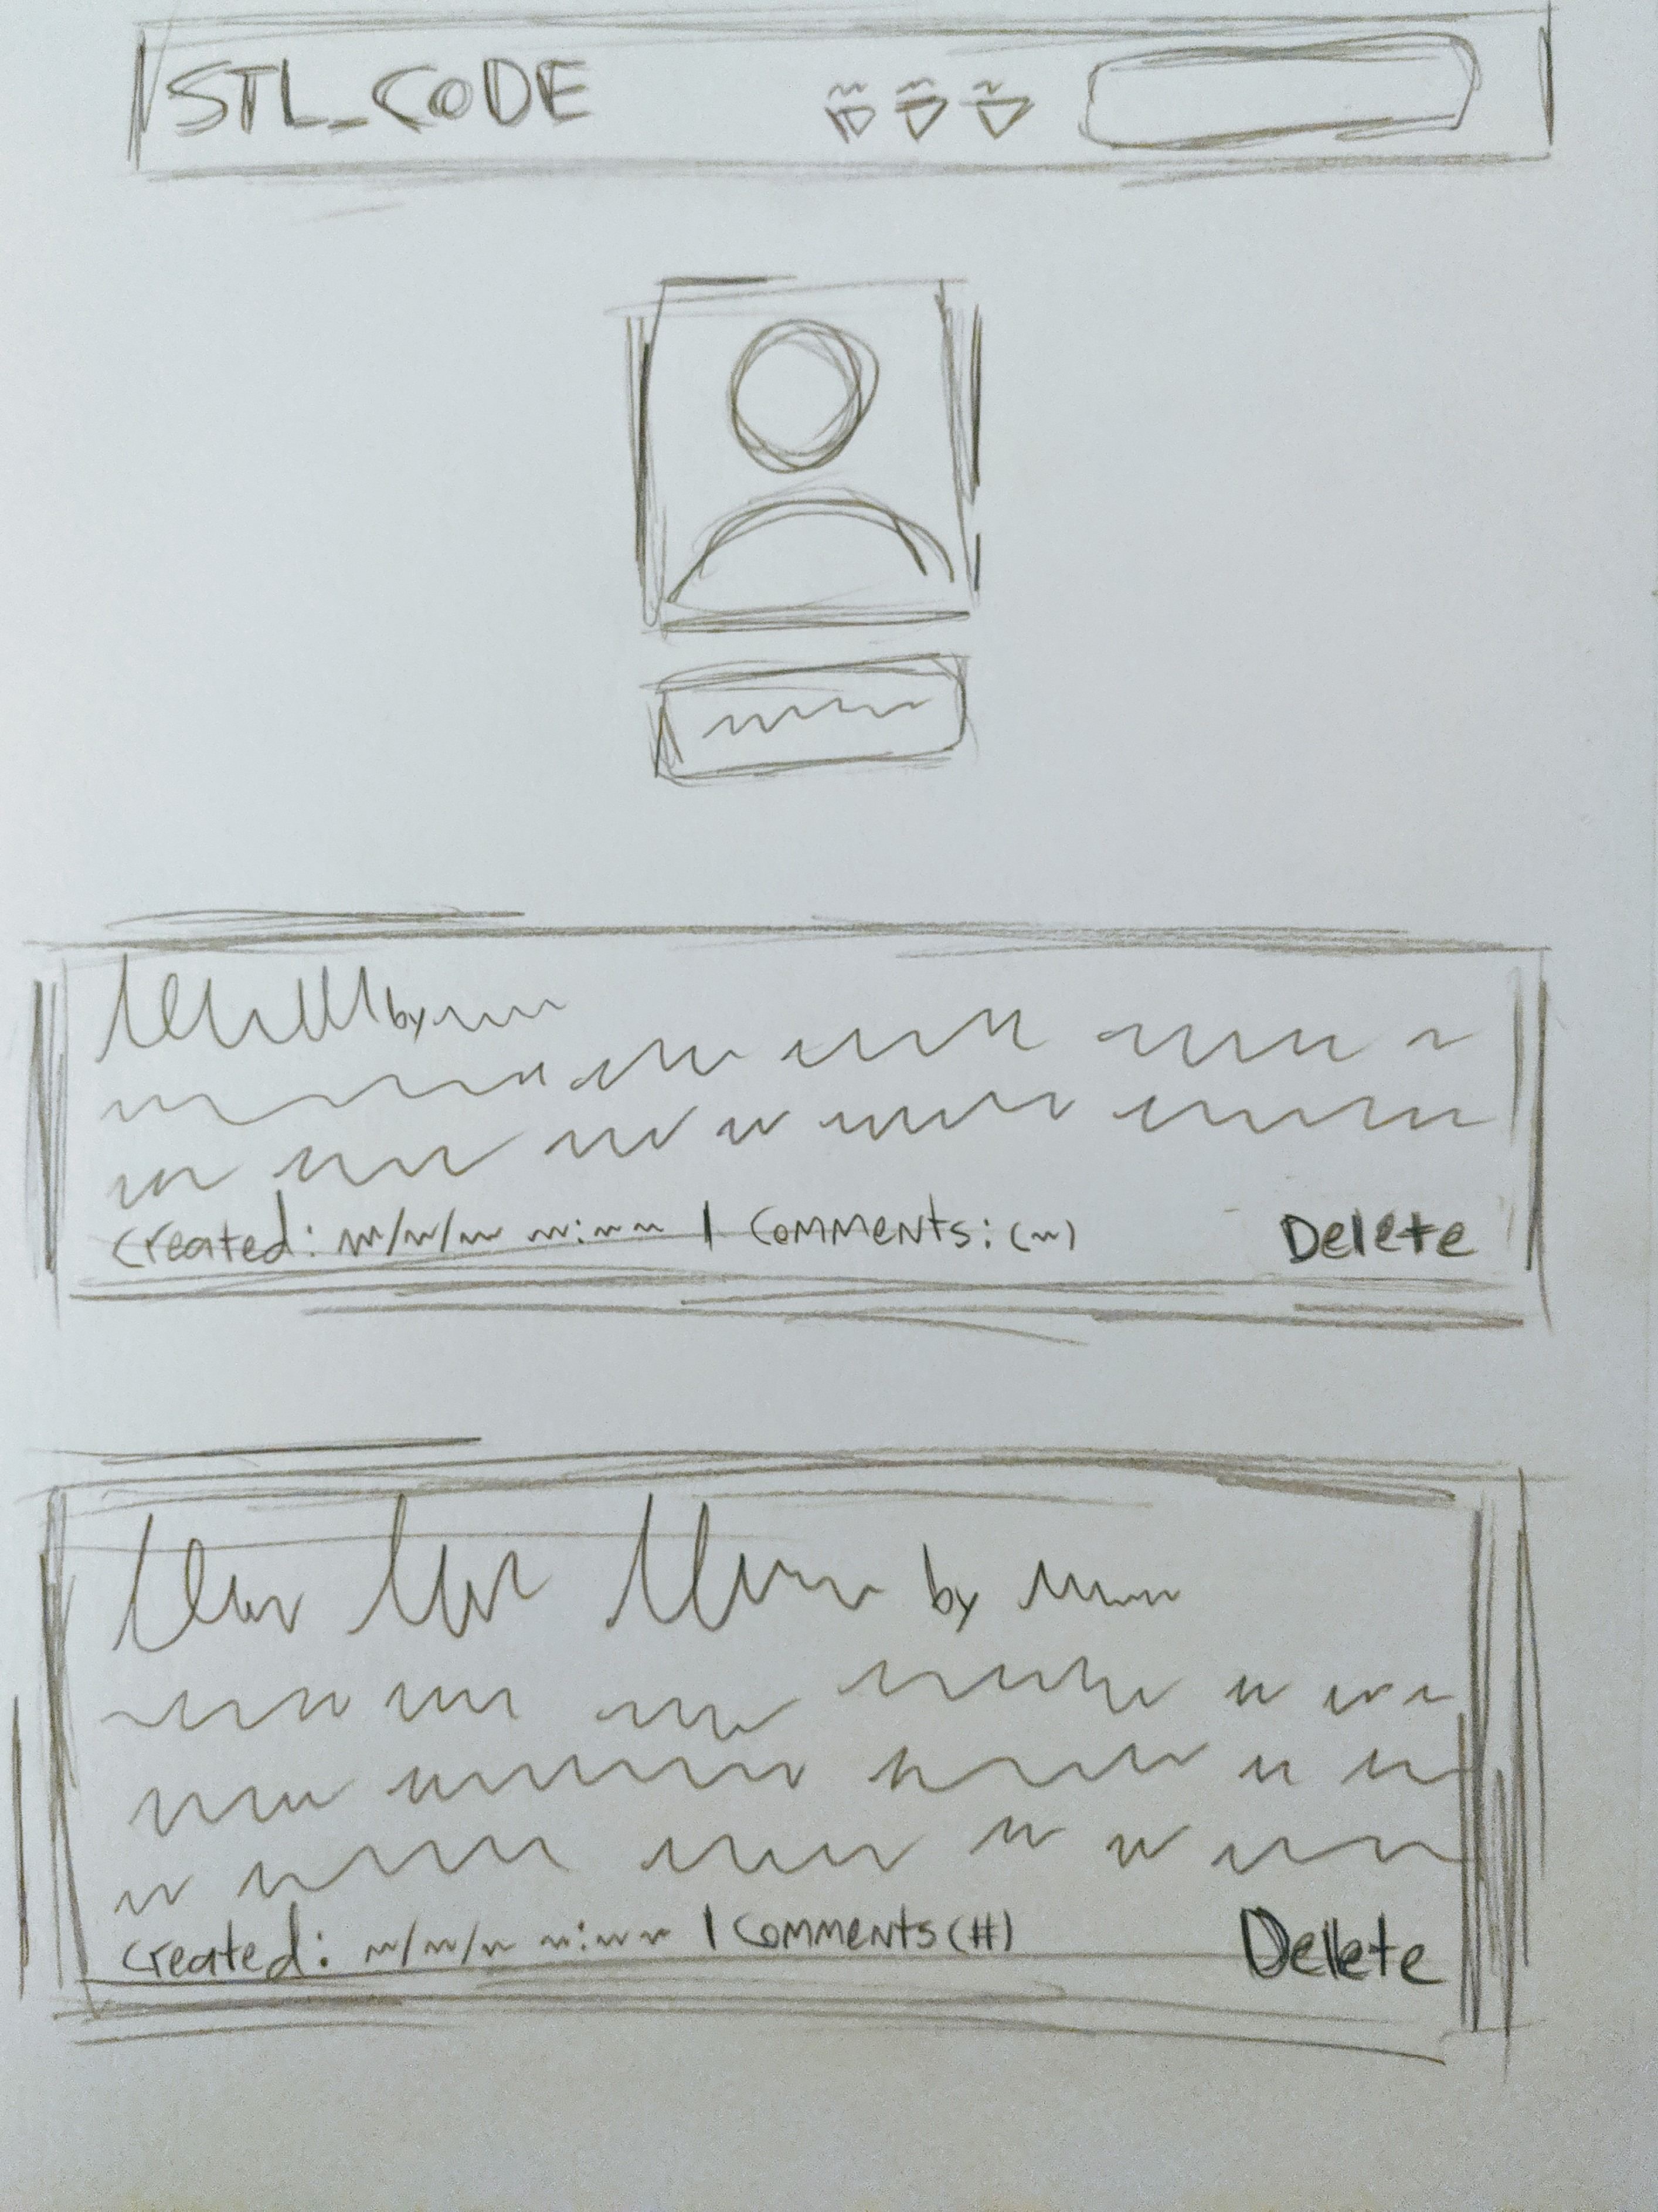 STL_CODE
by
Created: / / : | Comments: ( ) Delete
by
Created: / / : | Comments (#) Delete